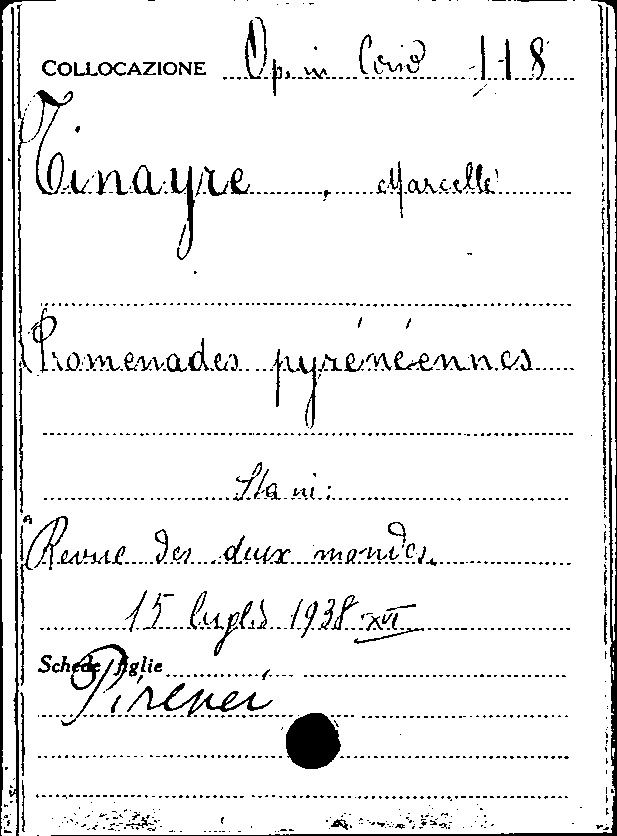 COLLOCAZIONE Op. in Cons 118
Tinayre, Marcelle
Promenades pyrénéennes
Sta in:
Revue des deux mondes.
15 luglio 1938 XVI
Schede figlie
Pirenei